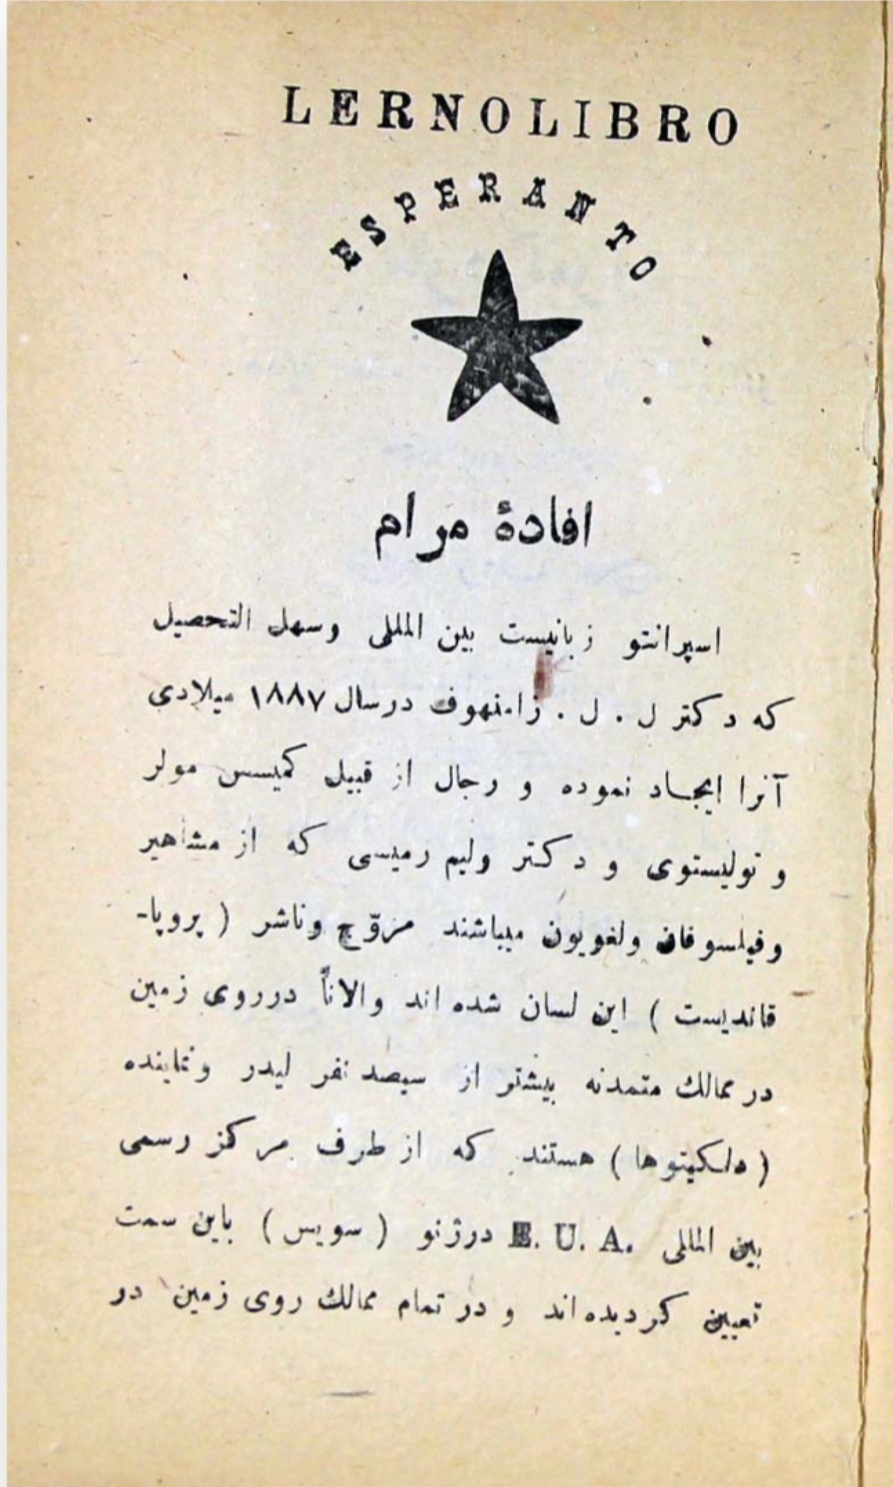 LERNOLIBRO
ESPERANTO
افادهٔ مرام
اسپرانتو زبانیست بین المللی وسهل التحصیل
که دکتر ل . ل . زامنهوف درسال ۱۸۸۷ میلادی
آنرا ایجاد نموده و رجال از قبیل کمیسس مولر
و تولیستوی و دکتر ولیم رمیسی که از مشاهیر
وفیلسوفان ولغویون میباشند مروّج وناشر ( پروپا-
قاندیست ) این لسان شده اند والاناً درروی زمین
در ممالك متمدنه بیشتر از سیصد نفر لیدر ونماینده
( دلکیتوها ) هستند که از طرف مرکز رسمی
بین المللی E. U. A. درژنو ( سویس ) باین سمت
تعیین کردیده اند و در تمام ممالك روی زمین در